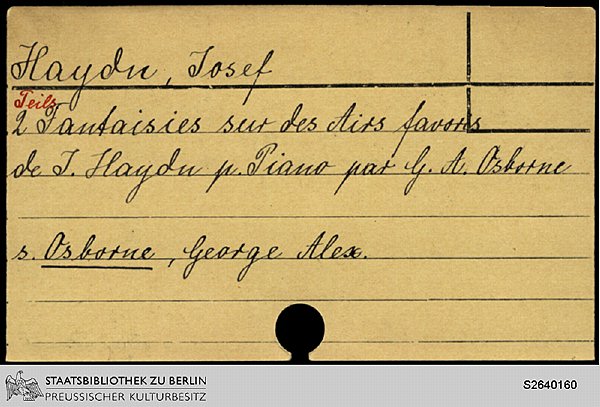 Haydn, Josef
Teils
2 Fantaisies sur des Airs favoris
de J. Haydn p. Piano par G. A. Osborne
s. Osborne, George Alex.
STAATSBIBLIOTHEK ZU BERLIN
PREUSSISCHER KULTURBESITZ
S2640160